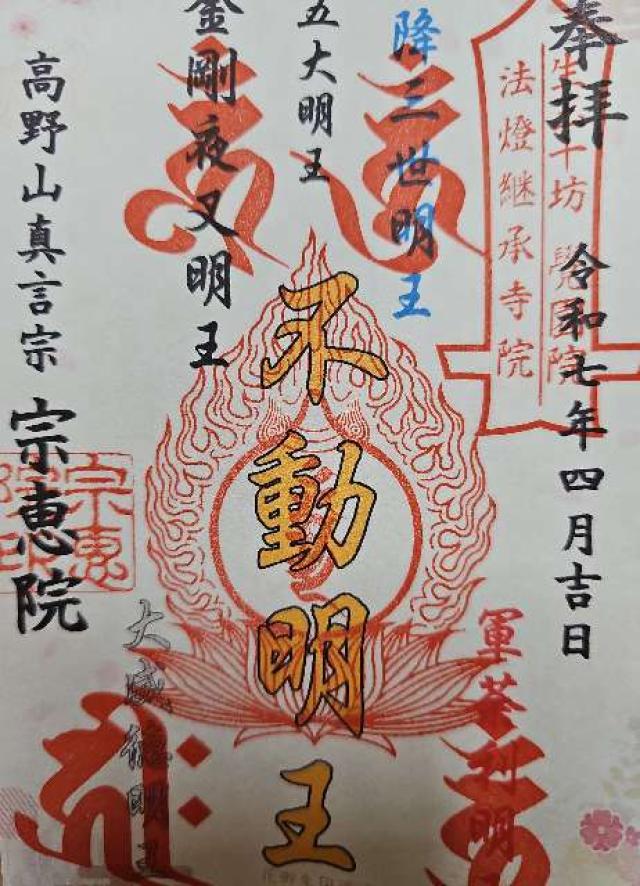 奉拝
令和七年四月吉日
法燈継承寺院
降三世明王
五大明王
金剛夜叉明王
不動明王
軍荼利明
大威徳明王
高野山真言宗
宗恵院
宗恵
院印